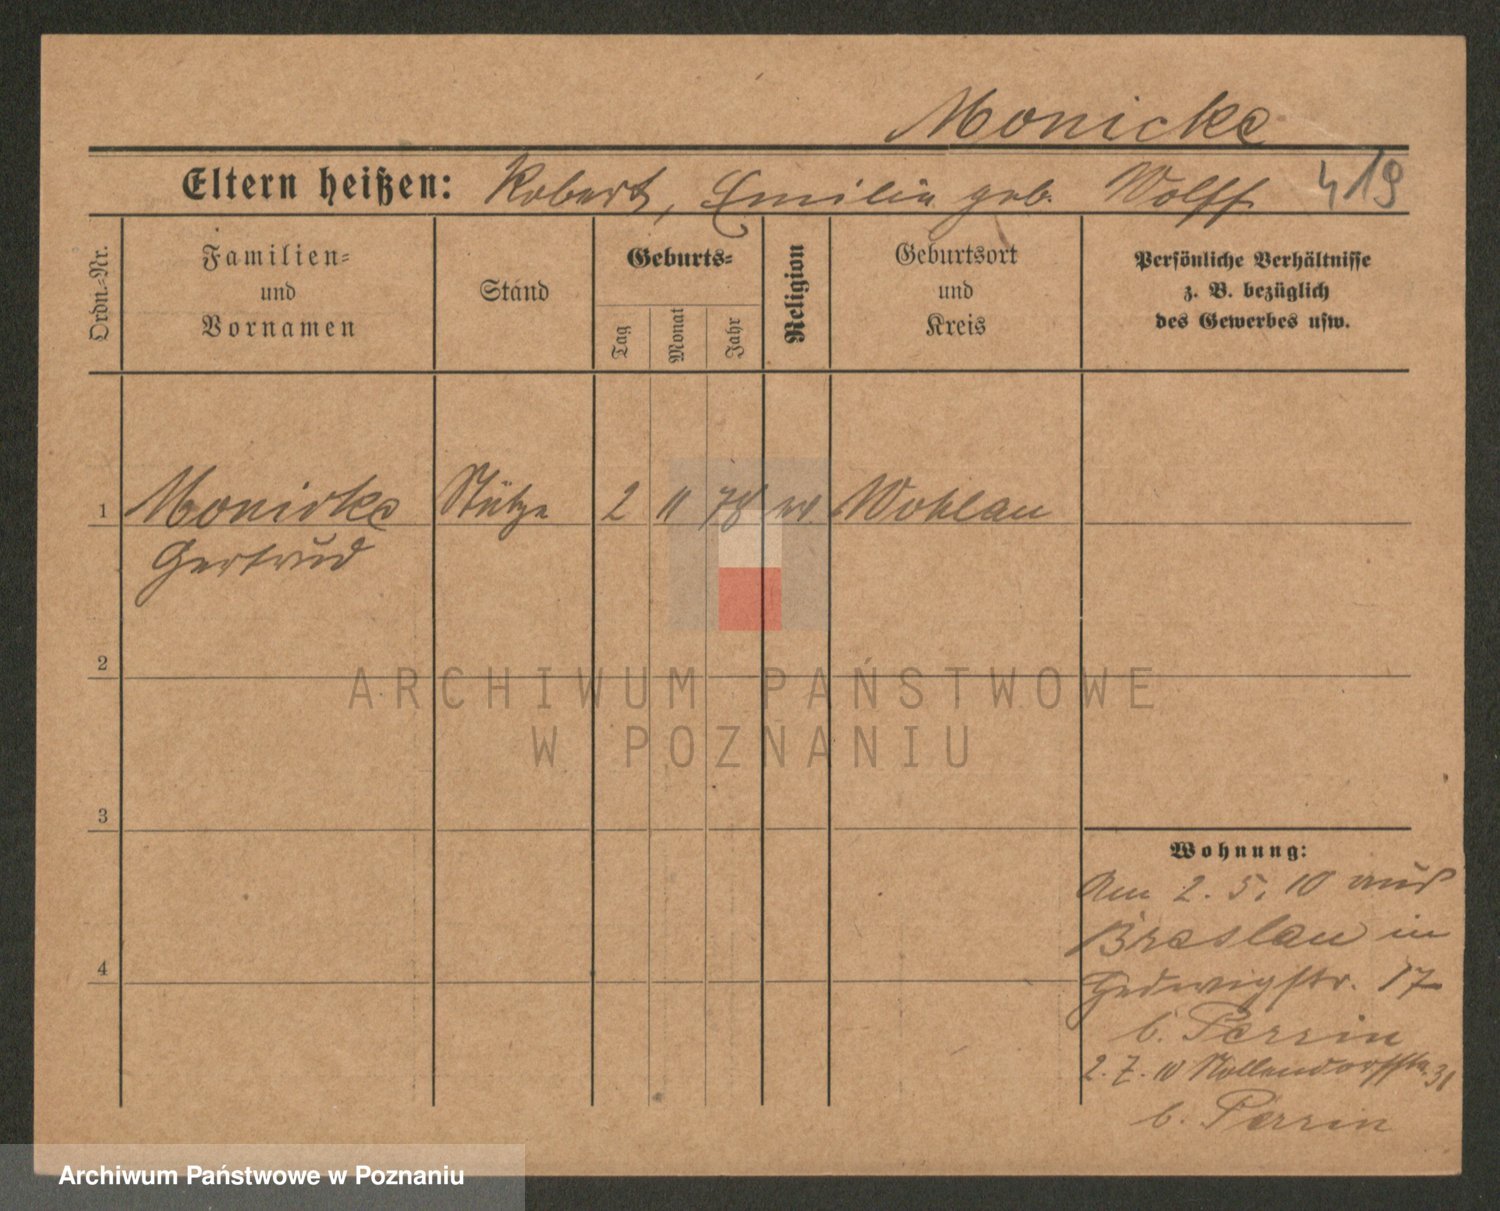 Monicke
Eltern heißen: Robert, Emilie geb. Wolff 419
Ordn.-Nr.
Familien-
und
Vornamen
Stand
Geburts-
Tag
Monat
Jahr
Religion
Geburtsort
und
Kreis
Persönliche Verhältnisse
z. B. bezüglich
des Gewerbes usw.
1 Monicke Stütze 2 11 78 Wohlau
Gertrud
2
3
4
Wohnung:
Am 2. 5. 10 aus
Breslau in
Hedwigstr. 17
b. Perrin
2. 7. 10 Nollendorfstr. 31
b. Perrin
ARCHIWUM PAŃSTWOWE
W POZNANIU
Archiwum Państwowe w Poznaniu